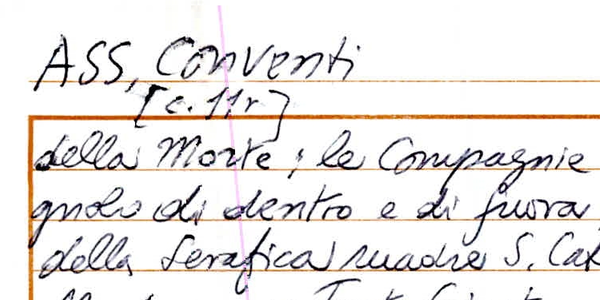 ASS, Conventi
[c. 11r]
della Morte; le Compagnie
gnolo di dentro e di fuora
della Serafica madre S. Cat